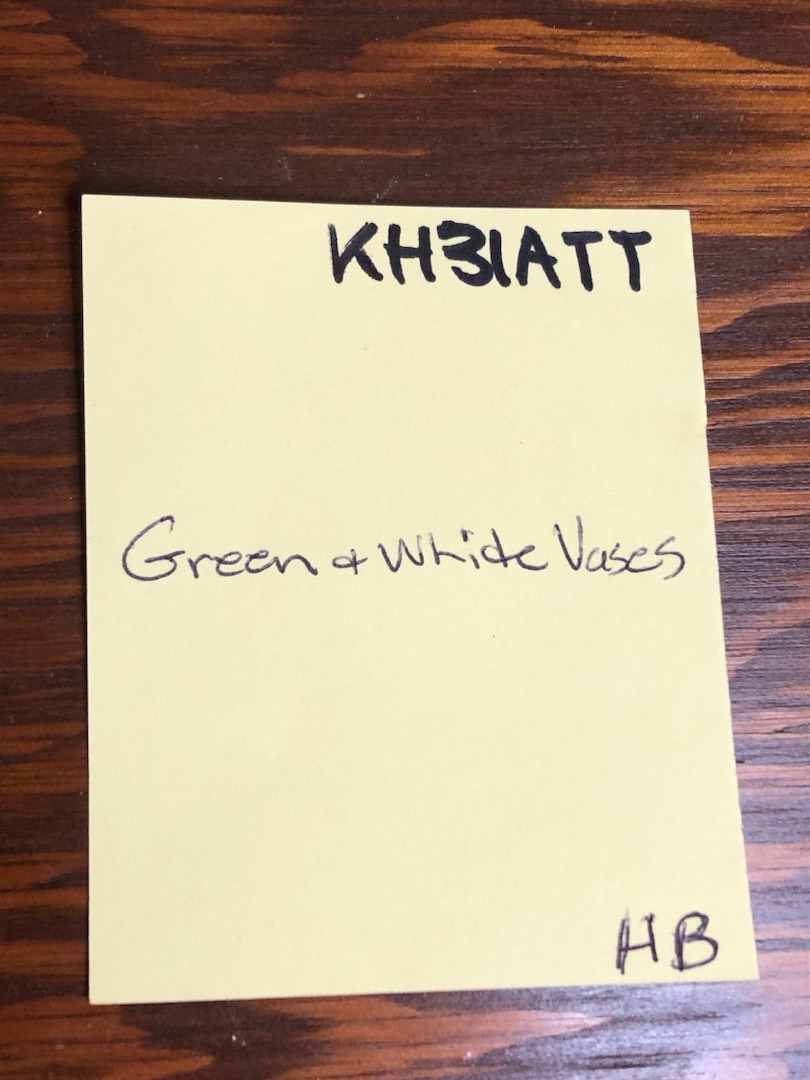 KH31ATT
Green & White Vases
HB